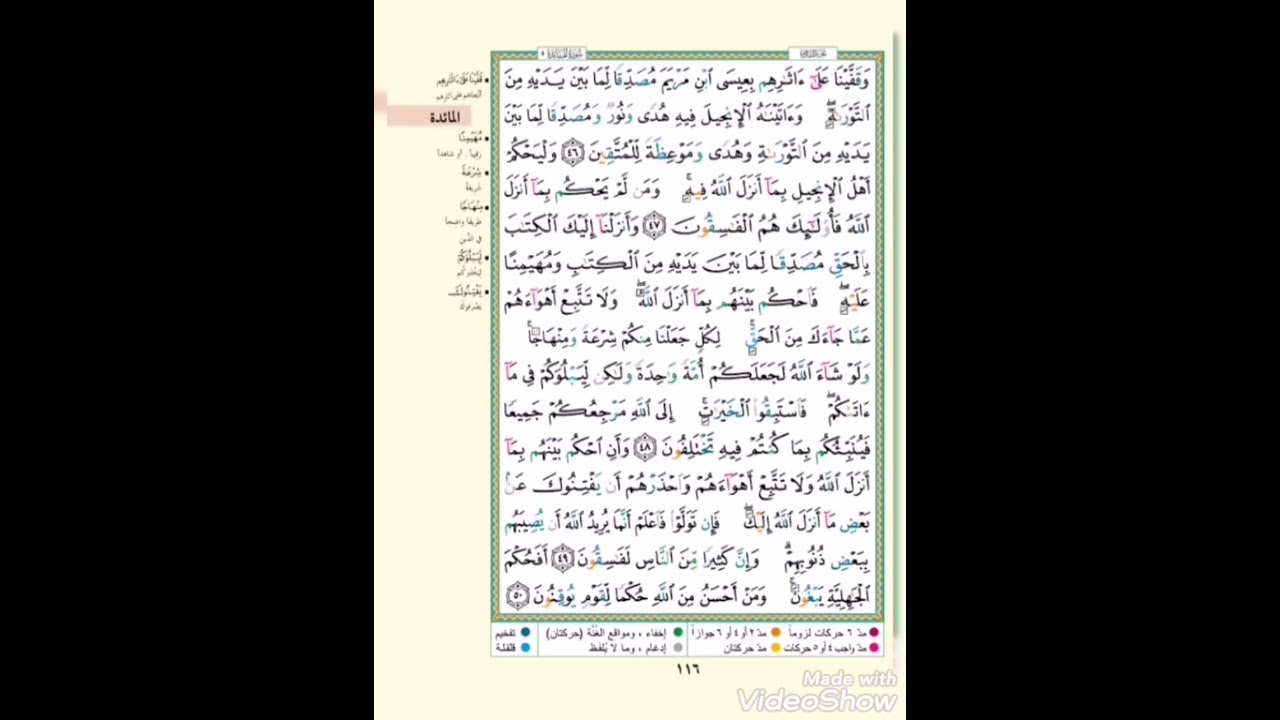 سُورَةُ المَائِدَة ٥
وَقَفَّيْنَا عَلَىٰٓ ءَاثَٰرِهِم بِعِيسَى ٱبْنِ مَرْيَمَ مُصَدِّقًا لِّمَا بَيْنَ يَدَيْهِ مِنَ
ٱلتَّوْرَىٰةِ ۖ وَءَاتَيْنَٰهُ ٱلْإِنجِيلَ فِيهِ هُدًى وَنُورٌ وَمُصَدِّقًا لِّمَا بَيْنَ
يَدَيْهِ مِنَ ٱلتَّوْرَىٰةِ وَهُدًى وَمَوْعِظَةً لِّلْمُتَّقِينَ ٤٦ وَلْيَحْكُمْ
أَهْلُ ٱلْإِنجِيلِ بِمَآ أَنزَلَ ٱللَّهُ فِيهِ ۚ وَمَن لَّمْ يَحْكُم بِمَآ أَنزَلَ
ٱللَّهُ فَأُو۟لَٰٓئِكَ هُمُ ٱلْفَٰسِقُونَ ٤٧ وَأَنزَلْنَآ إِلَيْكَ ٱلْكِتَٰبَ
بِٱلْحَقِّ مُصَدِّقًا لِّمَا بَيْنَ يَدَيْهِ مِنَ ٱلْكِتَٰبِ وَمُهَيْمِنًا
عَلَيْهِ ۖ فَٱحْكُم بَيْنَهُم بِمَآ أَنزَلَ ٱللَّهُ ۖ وَلَا تَتَّبِعْ أَهْوَآءَهُمْ
عَمَّا جَآءَكَ مِنَ ٱلْحَقِّ ۚ لِكُلٍّ جَعَلْنَا مِنكُمْ شِرْعَةً وَمِنْهَاجًا ۚ
وَلَوْ شَآءَ ٱللَّهُ لَجَعَلَكُمْ أُمَّةً وَٰحِدَةً وَلَٰكِن لِّيَبْلُوَكُمْ فِى مَآ
ءَاتَىٰكُمْ ۖ فَٱسْتَبِقُوا۟ ٱلْخَيْرَٰتِ ۚ إِلَى ٱللَّهِ مَرْجِعُكُمْ جَمِيعًا
فَيُنَبِّئُكُم بِمَا كُنتُمْ فِيهِ تَخْتَلِفُونَ ٤٨ وَأَنِ ٱحْكُم بَيْنَهُم بِمَآ
أَنزَلَ ٱللَّهُ وَلَا تَتَّبِعْ أَهْوَآءَهُمْ وَٱحْذَرْهُمْ أَن يَفْتِنُوكَ عَنۢ
بَعْضِ مَآ أَنزَلَ ٱللَّهُ إِلَيْكَ ۖ فَإِن تَوَلَّوْا۟ فَٱعْلَمْ أَنَّمَا يُرِيدُ ٱللَّهُ أَن يُصِيبَهُم
بِبَعْضِ ذُنُوبِهِمْ ۗ وَإِنَّ كَثِيرًا مِّنَ ٱلنَّاسِ لَفَٰسِقُونَ ٤٩ أَفَحُكْمَ
ٱلْجَٰهِلِيَّةِ يَبْغُونَ ۚ وَمَنْ أَحْسَنُ مِنَ ٱللَّهِ حُكْمًا لِّقَوْمٍ يُوقِنُونَ ٥٠
قَفَّيْنَا عَلَىٰٓ ءَاثَٰرِهِم
المائدة
مُهَيْمِنًا
رقيباً . أو شاهداً
شِرْعَةً
شريعةً
مِنْهَاجًا
طريقاً واضحاً
في الدّين
لِّيَبْلُوَكُمْ
ليختبركم
يَفْتِنُوكَ
يصرفوك
مدّ ٦ حركات لزوماً مدّ ٢ أو ٤ أو ٦ جوازاً إخفاء ، ومواقع الغُنَّة (حركتان) تفخيم
مدّ واجب ٤ أو ٥ حركات مدّ حركتان إدغام ، وما لا يُلفَظ قلقلة
١١٦
Made with
VideoShow